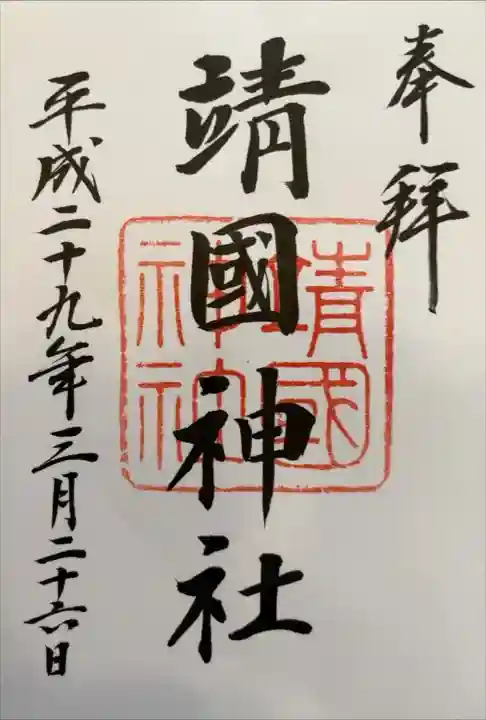 奉拜
靖國神社
靖國神社
平成二十九年三月二十六日